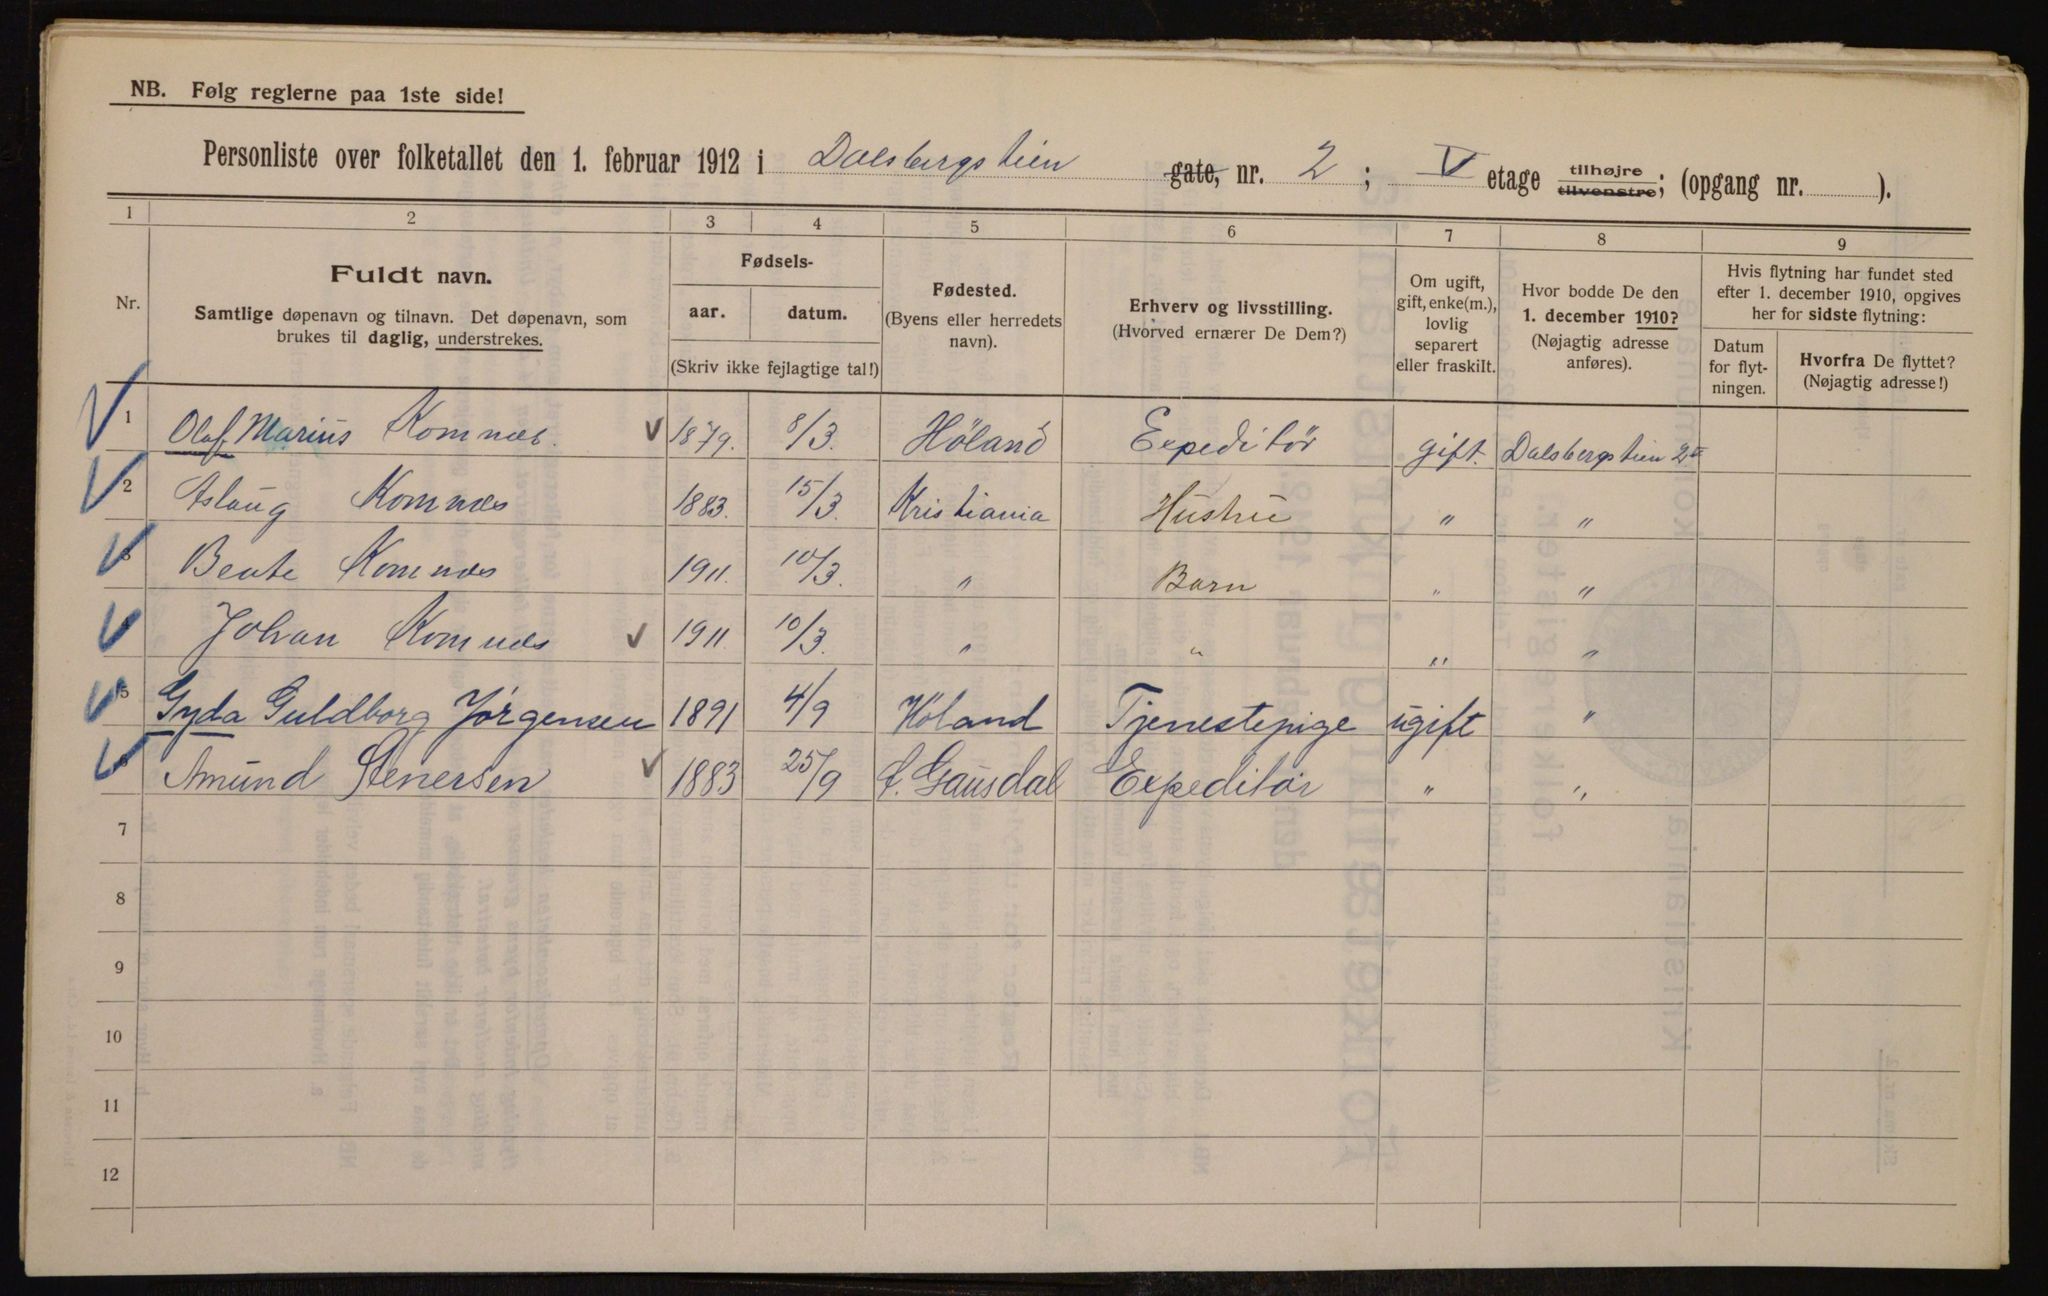 NB. Følg reglerne paa 1ste side!
Personliste over folketallet den 1. februar 1912 i Dalsbergstien gate, nr. 2; V etage tilhøjre tilvenstre; (opgang nr. ).
1 2 3 4 5 6 7 8 9
Nr.
Fuldt navn.
Samtlige døpenavn og tilnavn. Det døpenavn, som
brukes til daglig, understrekes.
Fødsels-
aar. datum.
(Skriv ikke fejlagtige tal!)
Fødested.
(Byens eller herredets
navn).
Erhverv og livsstilling.
(Hvorved ernærer De Dem?)
Om ugift,
gift, enke(m.),
lovlig
separert
eller fraskilt.
Hvor bodde De den
1. december 1910?
(Nøjagtig adresse
anføres).
Hvis flytning har fundet sted
efter 1. december 1910, opgives
her for sidste flytning:
Datum
for flyt-
ningen.
Hvorfra De flyttet?
(Nøjagtig adresse!)
1 Olaf Marius Komnæs. 1879. 8/3. Høland Expeditør gift. Dalsbergstien 2
2 Aslaug Komnæs 1883. 15/3. Kristiania Hustru " "
3 Bente Komnæs 1911. 10/3. " Barn " "
Johan Komnæs 1911. 10/3. " " " "
5 Gyda Guldborg Jørgensen 1891 4/9 Høland Tjenestepige ugift "
6 Amund Stenersen 1883 25/9 Gausdal Expeditør " "
7
8
9
10
11
12